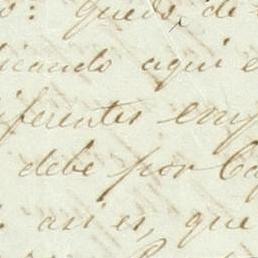 o: queda, de
icando aqui e
iferentes emp
debe por Ca
asi es, que